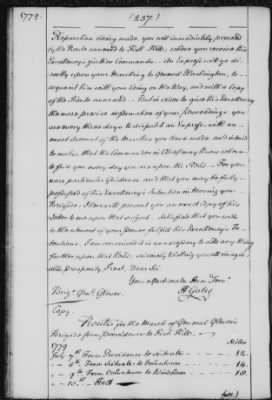 1779.
(237.)
Preparation being made, you will immediately proceed
by the Route annexed to Fish Kill, where you receive his
Excellency's further Commands. An Express will go di-
rectly upon your Marching to General Washington, to
acquaint him with your being on the Way, and with a Copy
of the Route annexed. But in order to give his Excellency
the more precise information of your proceedings you
are every three days to dispatch an Express, with an
exact account of the Marches you have made and intend
to make, that the Commander in Chief may know where
to find you every day you are upon the Road. For your
more particular Guidance, and that you may be fully
possessed of his Excellency's Intention in Moving your
Brigade; I herewith present you an exact Copy of his
Letter to me upon that subject. Satisfied that you will
to the utmost of your power fulfill his Excellency's In-
tentions, I am convinced it is unnecessary to add any thing
further upon that Head; sincerely wishing you all imagin-
able prosperity I rest, Dear Sir.
Your affectionate Hum. Serv.
H Gates
Brig. Gen. Glover.
Copy.
Route for the March of General Glover's
Brigade from Providence to Fish Kill.
1779
Miles
July 7th From Providence to Scituate 12.
8th From Scituate to Voluntown 14.
9th From Voluntown to Windham 18.
10th Halt